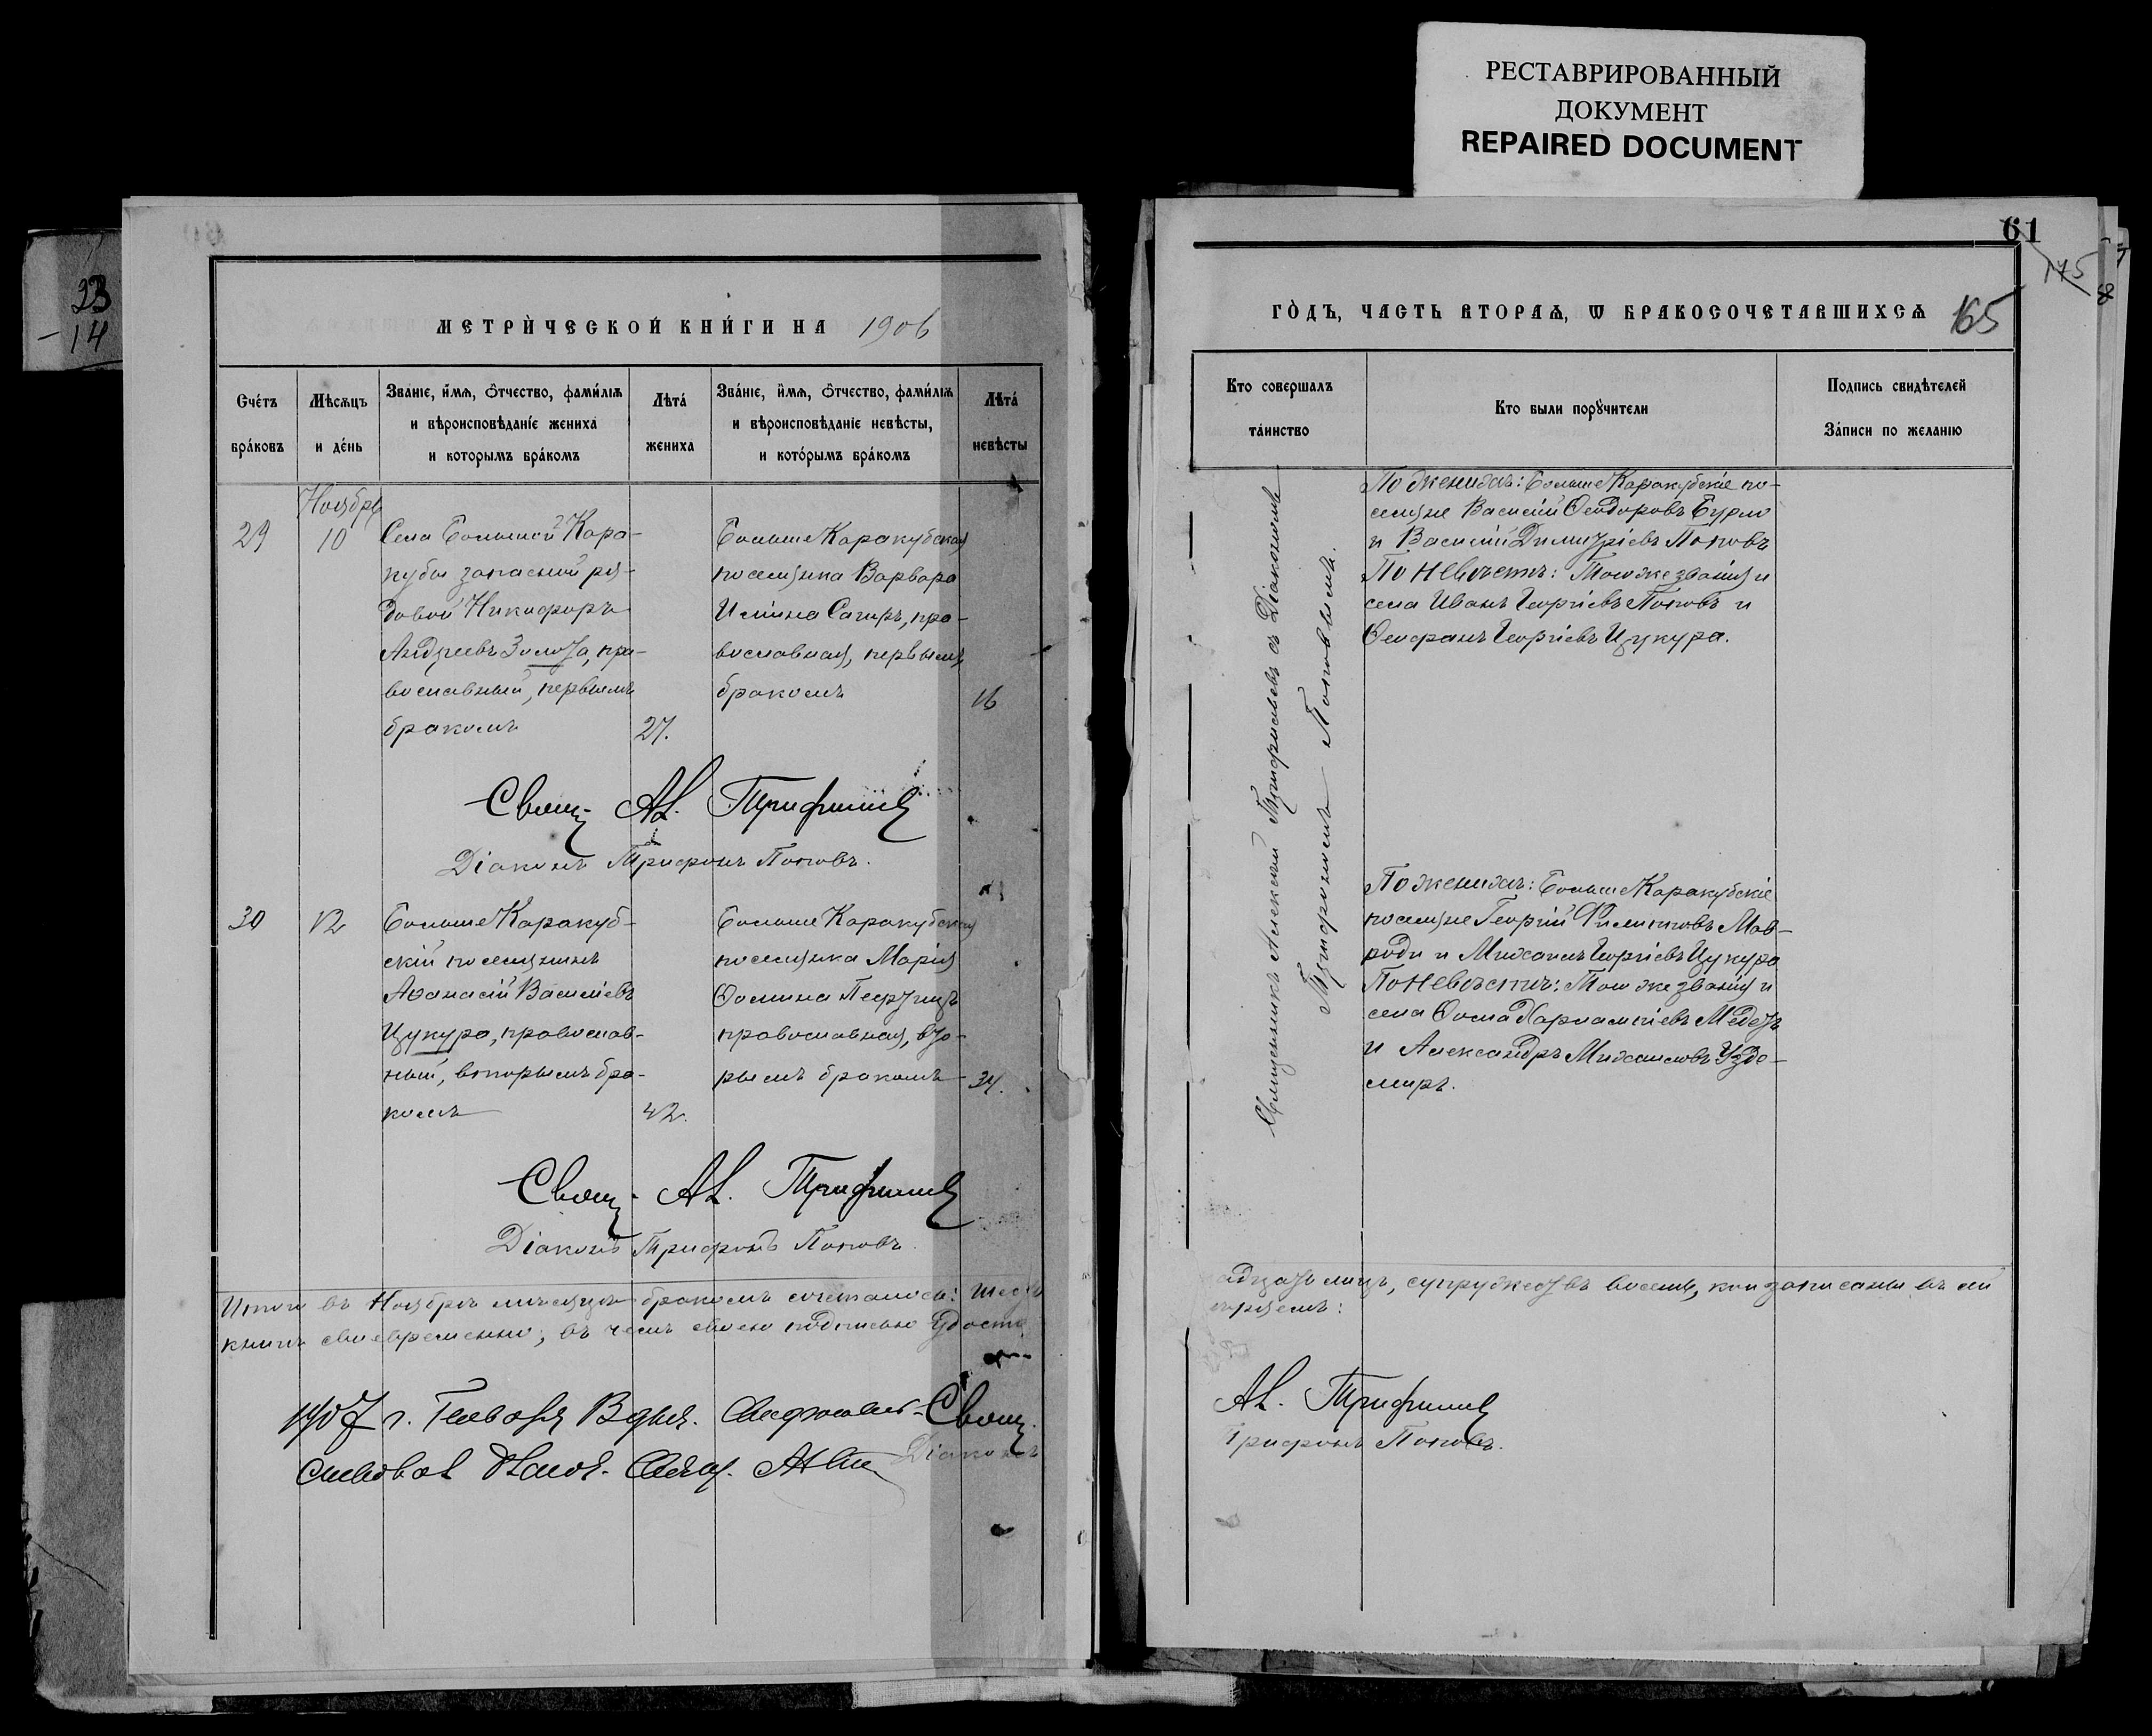 РЕСТАВРИРОВАННЫЙ
ДОКУМЕНТ
REPAIRED DOCUMENT
23
-14
МЕТРИЧЕСКОЙ КНИГИ НА 1906
Счетъ браковъ
Мѣсяцъ и день
Званіе, имя, отчество, фамилія
и вѣроисповѣданіе жениха
и которымъ бракомъ
Лѣта жениха
Званіе, имя, отчество, фамилія
и вѣроисповѣданіе невѣсты,
и которымъ бракомъ
Лѣта невѣсты
Ноябрь
29
10
Села Большой Кара-
кубы запасный ря-
довой Никифоръ
Андреевъ Золота, пра-
вославный, первымъ
бракомъ
27.
Больше Каракубская
поселянка Варвара
Иліина Сагиръ, пра-
вославная, первымъ
бракомъ
16
Свящ. Ал. Трифилієвъ
Діаконъ Трифонъ Поповъ.
30
12
Больше Каракуб-
скій поселянинъ
Аѳанасій Василіевъ
Цукура, православ-
ный, вторымъ бра-
комъ
42.
Больше Каракубская
поселянка Марія
Ѳомина
православная, вто-
рымъ бракомъ
34.
Свящ. Ал. Трифилієвъ
Діаконъ Трифонъ Поповъ
Итого въ Ноябрѣ мѣсяцѣ бракомъ сочеталось:
книги своевременно, въ чемъ своею подписью удосто
1907 г. Января
Свящ.
Діаконъ
61
175
165
ГОДЪ, ЧАСТЬ ВТОРАЯ, Ѡ БРАКОСОЧЕТАВШИХСЯ
Кто совершалъ
таинство
Кто были поручители
Подпись свидѣтелей
Записи по желанію
Священникъ Алексій Трифиліевъ съ Діакономъ
Трифономъ Поповымъ.
По женихѣ: Больше Каракубскіе по-
селяне Василій Ѳеодоровъ Бурло
и Василій Димитріевъ Поповъ
По невѣстѣ: Того же званія и
села Иванъ Георгіевъ Поповъ и
Ѳеофанъ Георгіевъ Цукура.
По женихѣ: Больше Каракубскіе
поселяне Георгій Филипповъ Мав-
роди и Михаилъ Георгіевъ Цукура
По невѣстѣ: Того же званія и
села Ѳома Харлампіевъ
и Александръ Михаиловъ Узде-
миръ.
адцать лицъ, супружествъ восемь, кои записаны въ сіи
вѣряемъ:
Ал. Трифилієвъ
Трифонъ Поповъ.